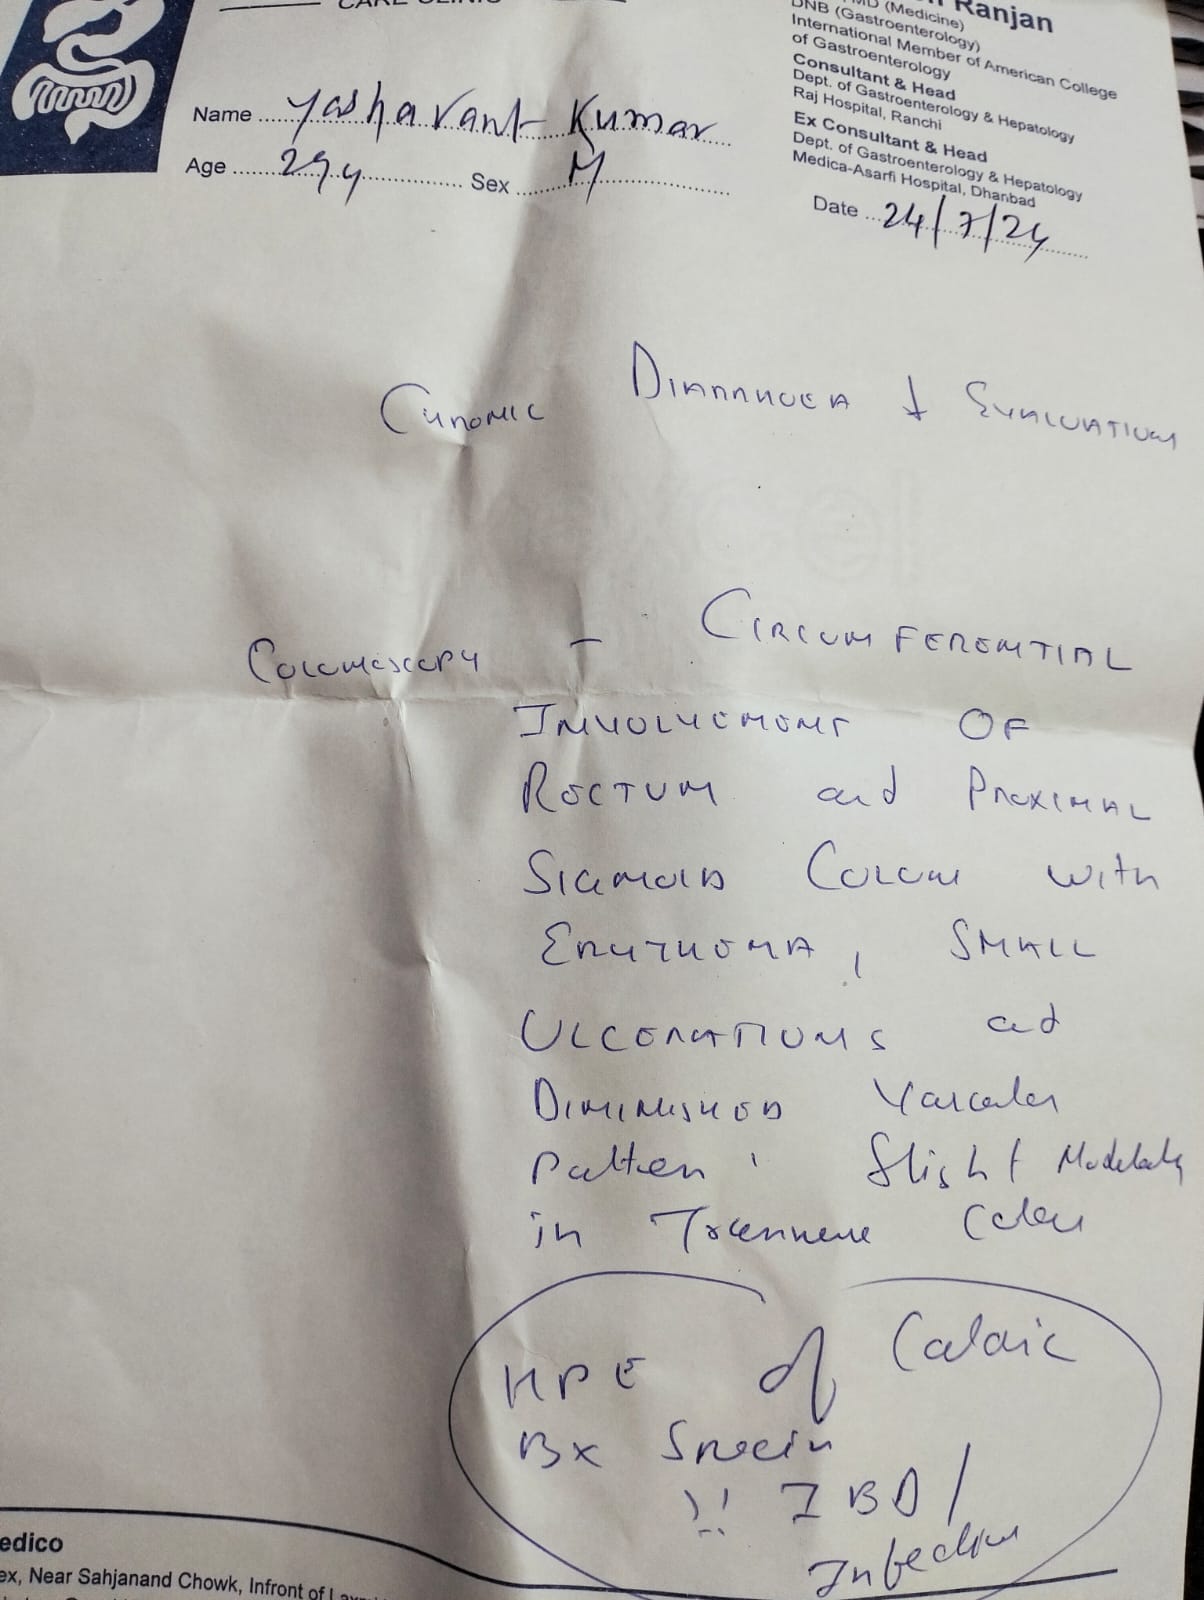 CARE CLINIC
Ranjan
MD (Medicine)
DNB (Gastroenterology)
International Member of American College
of Gastroenterology
Consultant & Head
Dept. of Gastroenterology & Hepatology
Raj Hospital, Ranchi
Ex Consultant & Head
Dept. of Gastroenterology & Hepatology
Medica-Asarfi Hospital, Dhanbad
Name Yashavant Kumar
Age 29y Sex M
Date 24/7/24
CHRONIC DIARRHOEA ↓ EVALUATION
COLONOSCOPY - CIRCUMFERENTIAL
INVOLVEMENT OF
RECTUM and PROXIMAL
SIGMOID COLON WITH
ERYTHEMA, SMALL
ULCERATIONS and
DIMINISHED Vascular
Pattern. Slight
in Transverse Colon
HPE of Colonic
Bx
?? IBD /
Infection
edico
ex, Near Sahjanand Chowk, Infront of